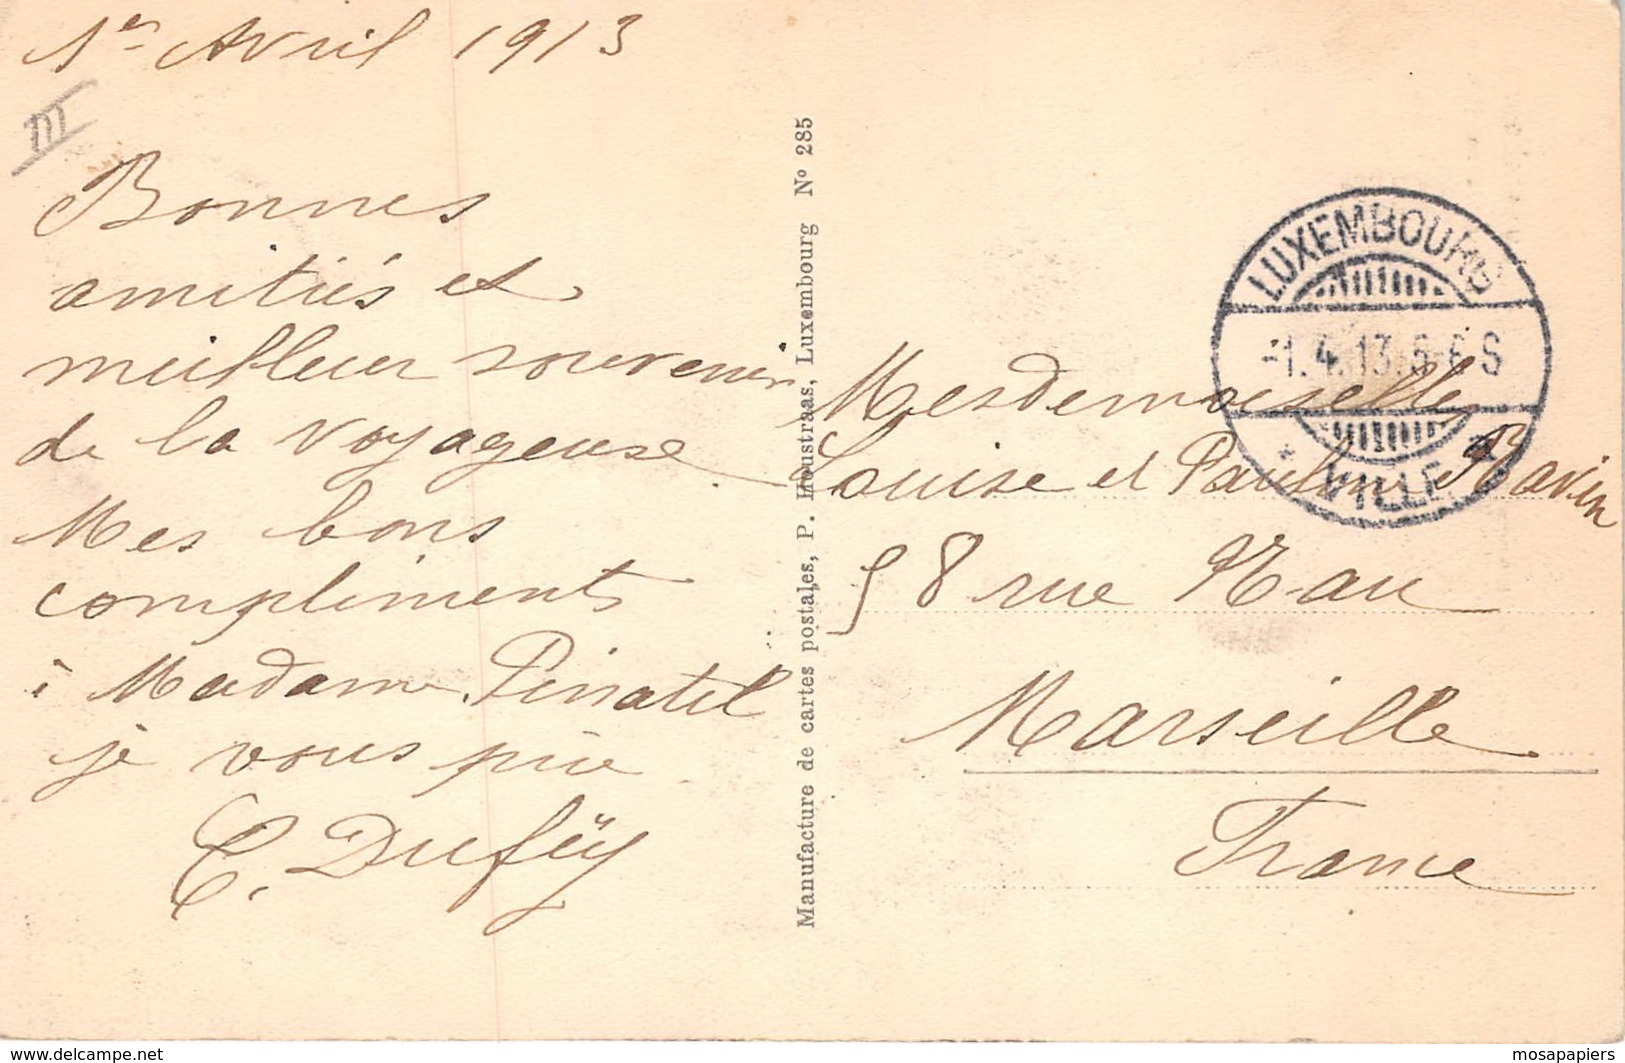 1er Avril 1913
III
Bonnes
amitiés et
meilleur souvenir
de la voyageuse
Mes bons
compliments
à Madame Pinatel
je vous prie
C. Dufëy
Manufacture de cartes postales, P. Houstraas, Luxembourg Nº 285
LUXEMBOURG
-1.4.13.5-6S
* VILLE *
Mesdemoiselles
Louise et Pauline Ravin
58 rue Nau
Marseille
France
www.delcampe.net
mosapapiers